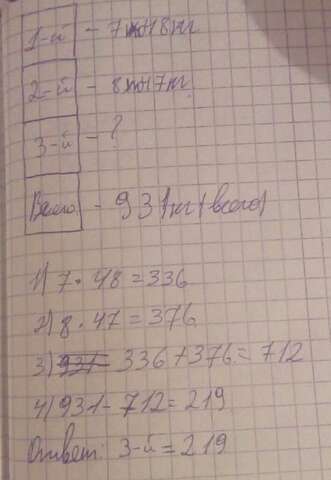 1-й - 7 48 кг
2-й - 8 47 кг
3-й - ?
Всего - 931 кг (всего)
1) 7 · 48 = 336
2) 8 · 47 = 376
3) 931- 336 + 376 = 712
4) 931 - 712 = 219
Ответ: 3-й = 219